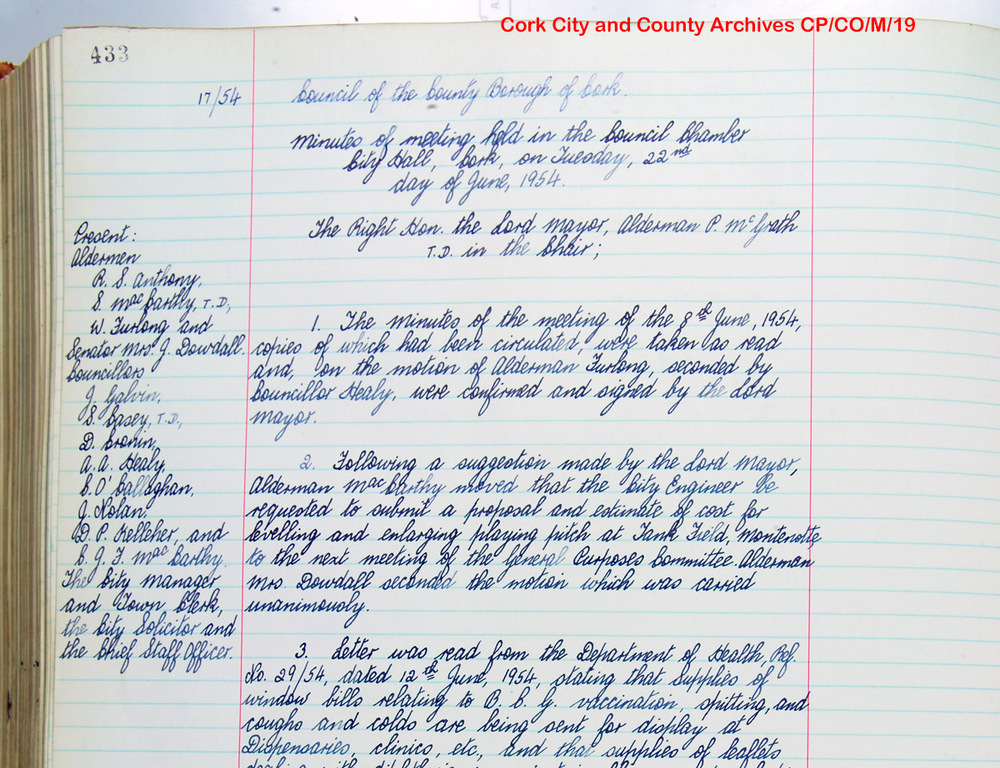 Cork City and County Archives CP/CO/M/19
433
17/54
Council of the County Borough of Cork.
Minutes of meeting held in the Council Chamber
City Hall, Cork, on Tuesday, 22nd
day of June, 1954.
The Right Hon. the Lord Mayor, Alderman P. McGrath
T.D. in the Chair;
Present:
Aldermen
R. S. Anthony,
S. MacCarthy, T.D.,
W. Furlong and
Senator Mrs. J. Dowdall.
Councillors
J. Galvin,
S. Casey, T.D.,
D. Cronin,
A. A. Healy,
C. O'Callaghan,
J. Nolan,
D. P. Kelleher, and
C. J. F. MacCarthy.
The City Manager
and Town Clerk,
the City Solicitor and
the Chief Staff Officer.
1. The Minutes of the meeting of the 8th June, 1954,
copies of which had been circulated, were taken as read
and, on the motion of Alderman Furlong, seconded by
Councillor Healy, were confirmed and signed by the Lord
Mayor.
2. Following a suggestion made by the Lord Mayor,
Alderman MacCarthy moved that the City Engineer be
requested to submit a proposal and estimate of cost for
levelling and enlarging playing pitch at Tank Field, Montenotte
to the next meeting of the General Purposes Committee. Alderman
Mrs. Dowdall seconded the motion which was carried
unanimously.
3. Letter was read from the Department of Health, Ref.
No. 29/54, dated 12th June, 1954, stating that supplies of
window bills relating to B. C. G. vaccination, spitting, and
coughs and colds are being sent for display at
Dispensaries, clinics, etc, and that supplies of leaflets